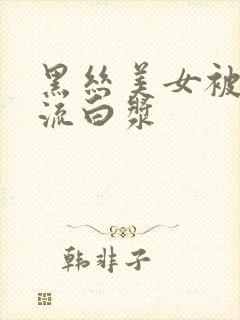 黑丝美女被
流白漿
韩非子